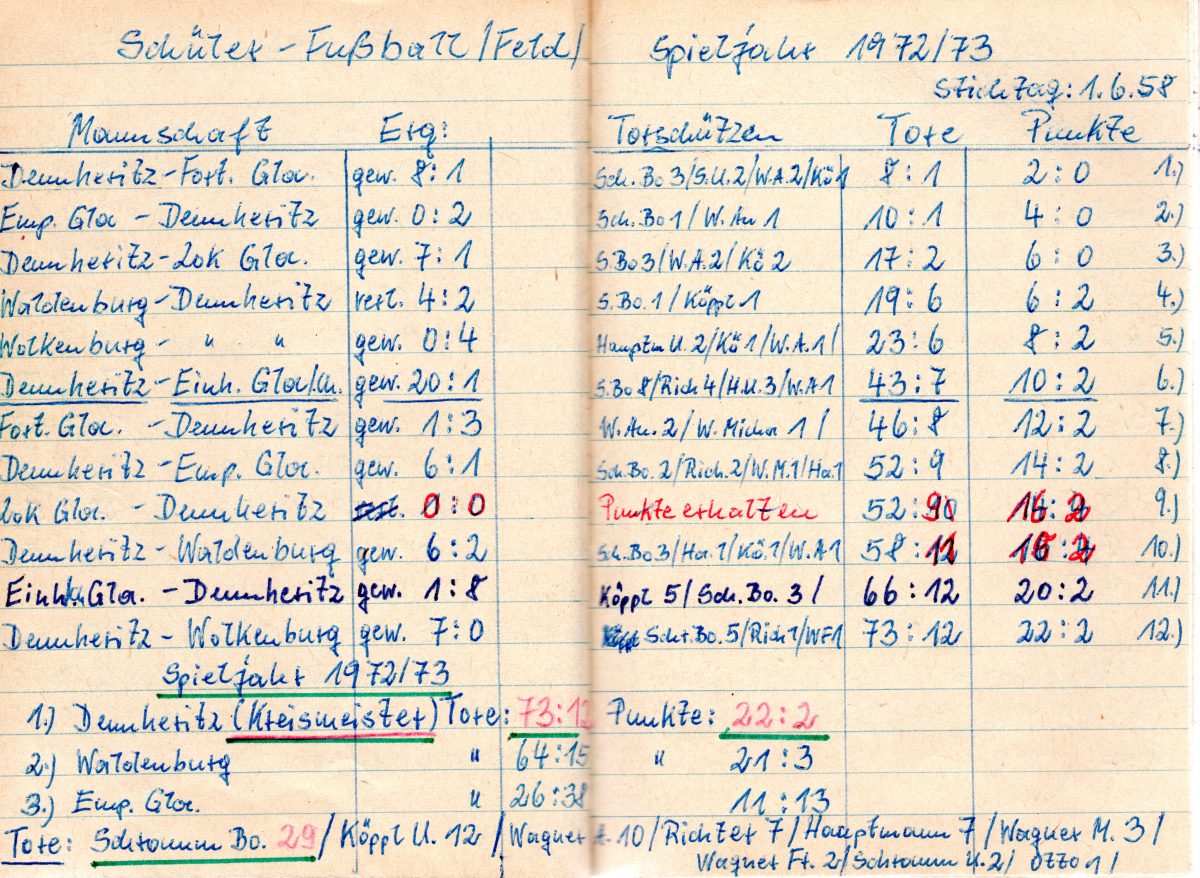 Schüler - Fußball /Feld/ Spieljahr 1972/73
Stichtag: 1.6.58
Mannschaft Erg: Torschützen Tore Punkte
Dennheritz-Fort. Gla. gew. 8:1 Sch.Bo 3/S.U.2/W.A.2/Kö1 8:1 2:0 1.)
Emp. Gla - Dennheritz gew. 0:2 Sch.Bo 1/W.An 1 10:1 4:0 2.)
Dennheritz-Lok Gla. gew. 7:1 S.Bo 3/W.A.2/Kö 2 17:2 6:0 3.)
Waldenburg-Dennheritz verl. 4:2 S.Bo.1/Köppl 1 19:6 6:2 4.)
Wolkenburg - " " gew. 0:4 Hauptm U.2/Kö 1/W.A.1/ 23:6 8:2 5.)
Dennheritz-Einh. Gla/ gew. 20:1 S.Bo 8/Rich 4/H.U.3/W.A1 43:7 10:2 6.)
Fort. Gla. - Dennheritz gew. 1:3 W.An.2/W.Micha 1/ 46:8 12:2 7.)
Dennheritz-Emp. Gla. gew. 6:1 Sch.Bo.2/Rich.2/W.M.1/Ha.1 52:9 14:2 8.)
Lok Gla. - Dennheritz 0:0 Punkte erhalten 52:9 16:2 9.)
Dennheritz-Waldenburg gew. 6:2 Sch.Bo3/Ha.1/Kö.1/W.A1 58:11 10.)
Einh. Gla. - Dennheritz gew. 1:8 Köppl 5/Sch.Bo.3/ 66:12 20:2 11.)
Dennheritz-Wolkenburg gew. 7:0 Schr.Bo.5/Rich1/WF1 73:12 22:2 12.)
Spieljahr 1972/73
1.) Dennheritz (Kreismeister) Tore: 73:12 Punkte: 22:2
2.) Waldenburg " 64:15 " 21:3
3.) Emp. Gla. " 26:38 11:13
Tore: Schramm Bo. 29/Köppl U. 12/Wagner A.10/Richter 7/Hauptmann 7/Wagner M. 3/
Wagner Fr. 2/Schramm U.2/ Otto 1/